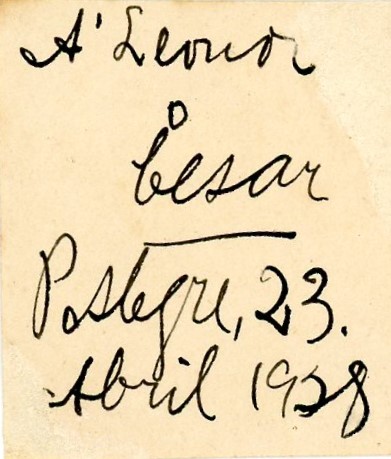 A' Leonor
o
Cesar
P. Alegre, 23.
Abril 1928